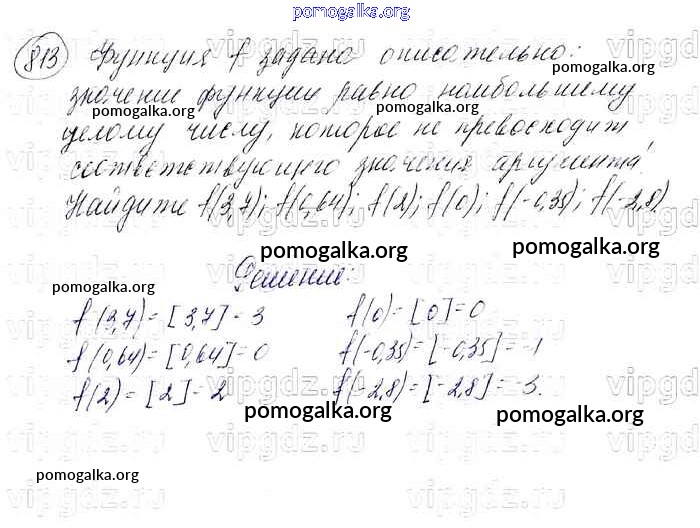 pomogalka.org
813 Функция f задана описательно:
значение функции равно наибольшему
целому числу, которое не превосходит
соответствующего значения аргумента.
Найдите f(3,7); f(0,64); f(2); f(0); f(-0,35); f(-2,8).
Решение:
f(3,7) = [3,7] = 3
f(0) = [0] = 0
f(0,64) = [0,64] = 0
f(-0,35) = [-0,35] = -1
f(2) = [2] = 2
f(-2,8) = [-2,8] = -3.
pomogalka.org
pomogalka.org
pomogalka.org
pomogalka.org
pomogalka.org
pomogalka.org
pomogalka.org
pomogalka.org
pomogalka.org
pomogalka.org
vipgdz.ru